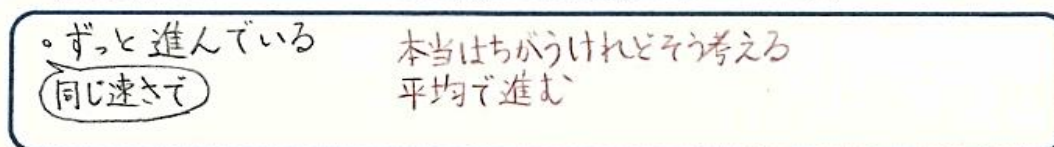 ・ずっと進んでいる
同じ速さで
本当はちがうけれどそう考える
平均で進む